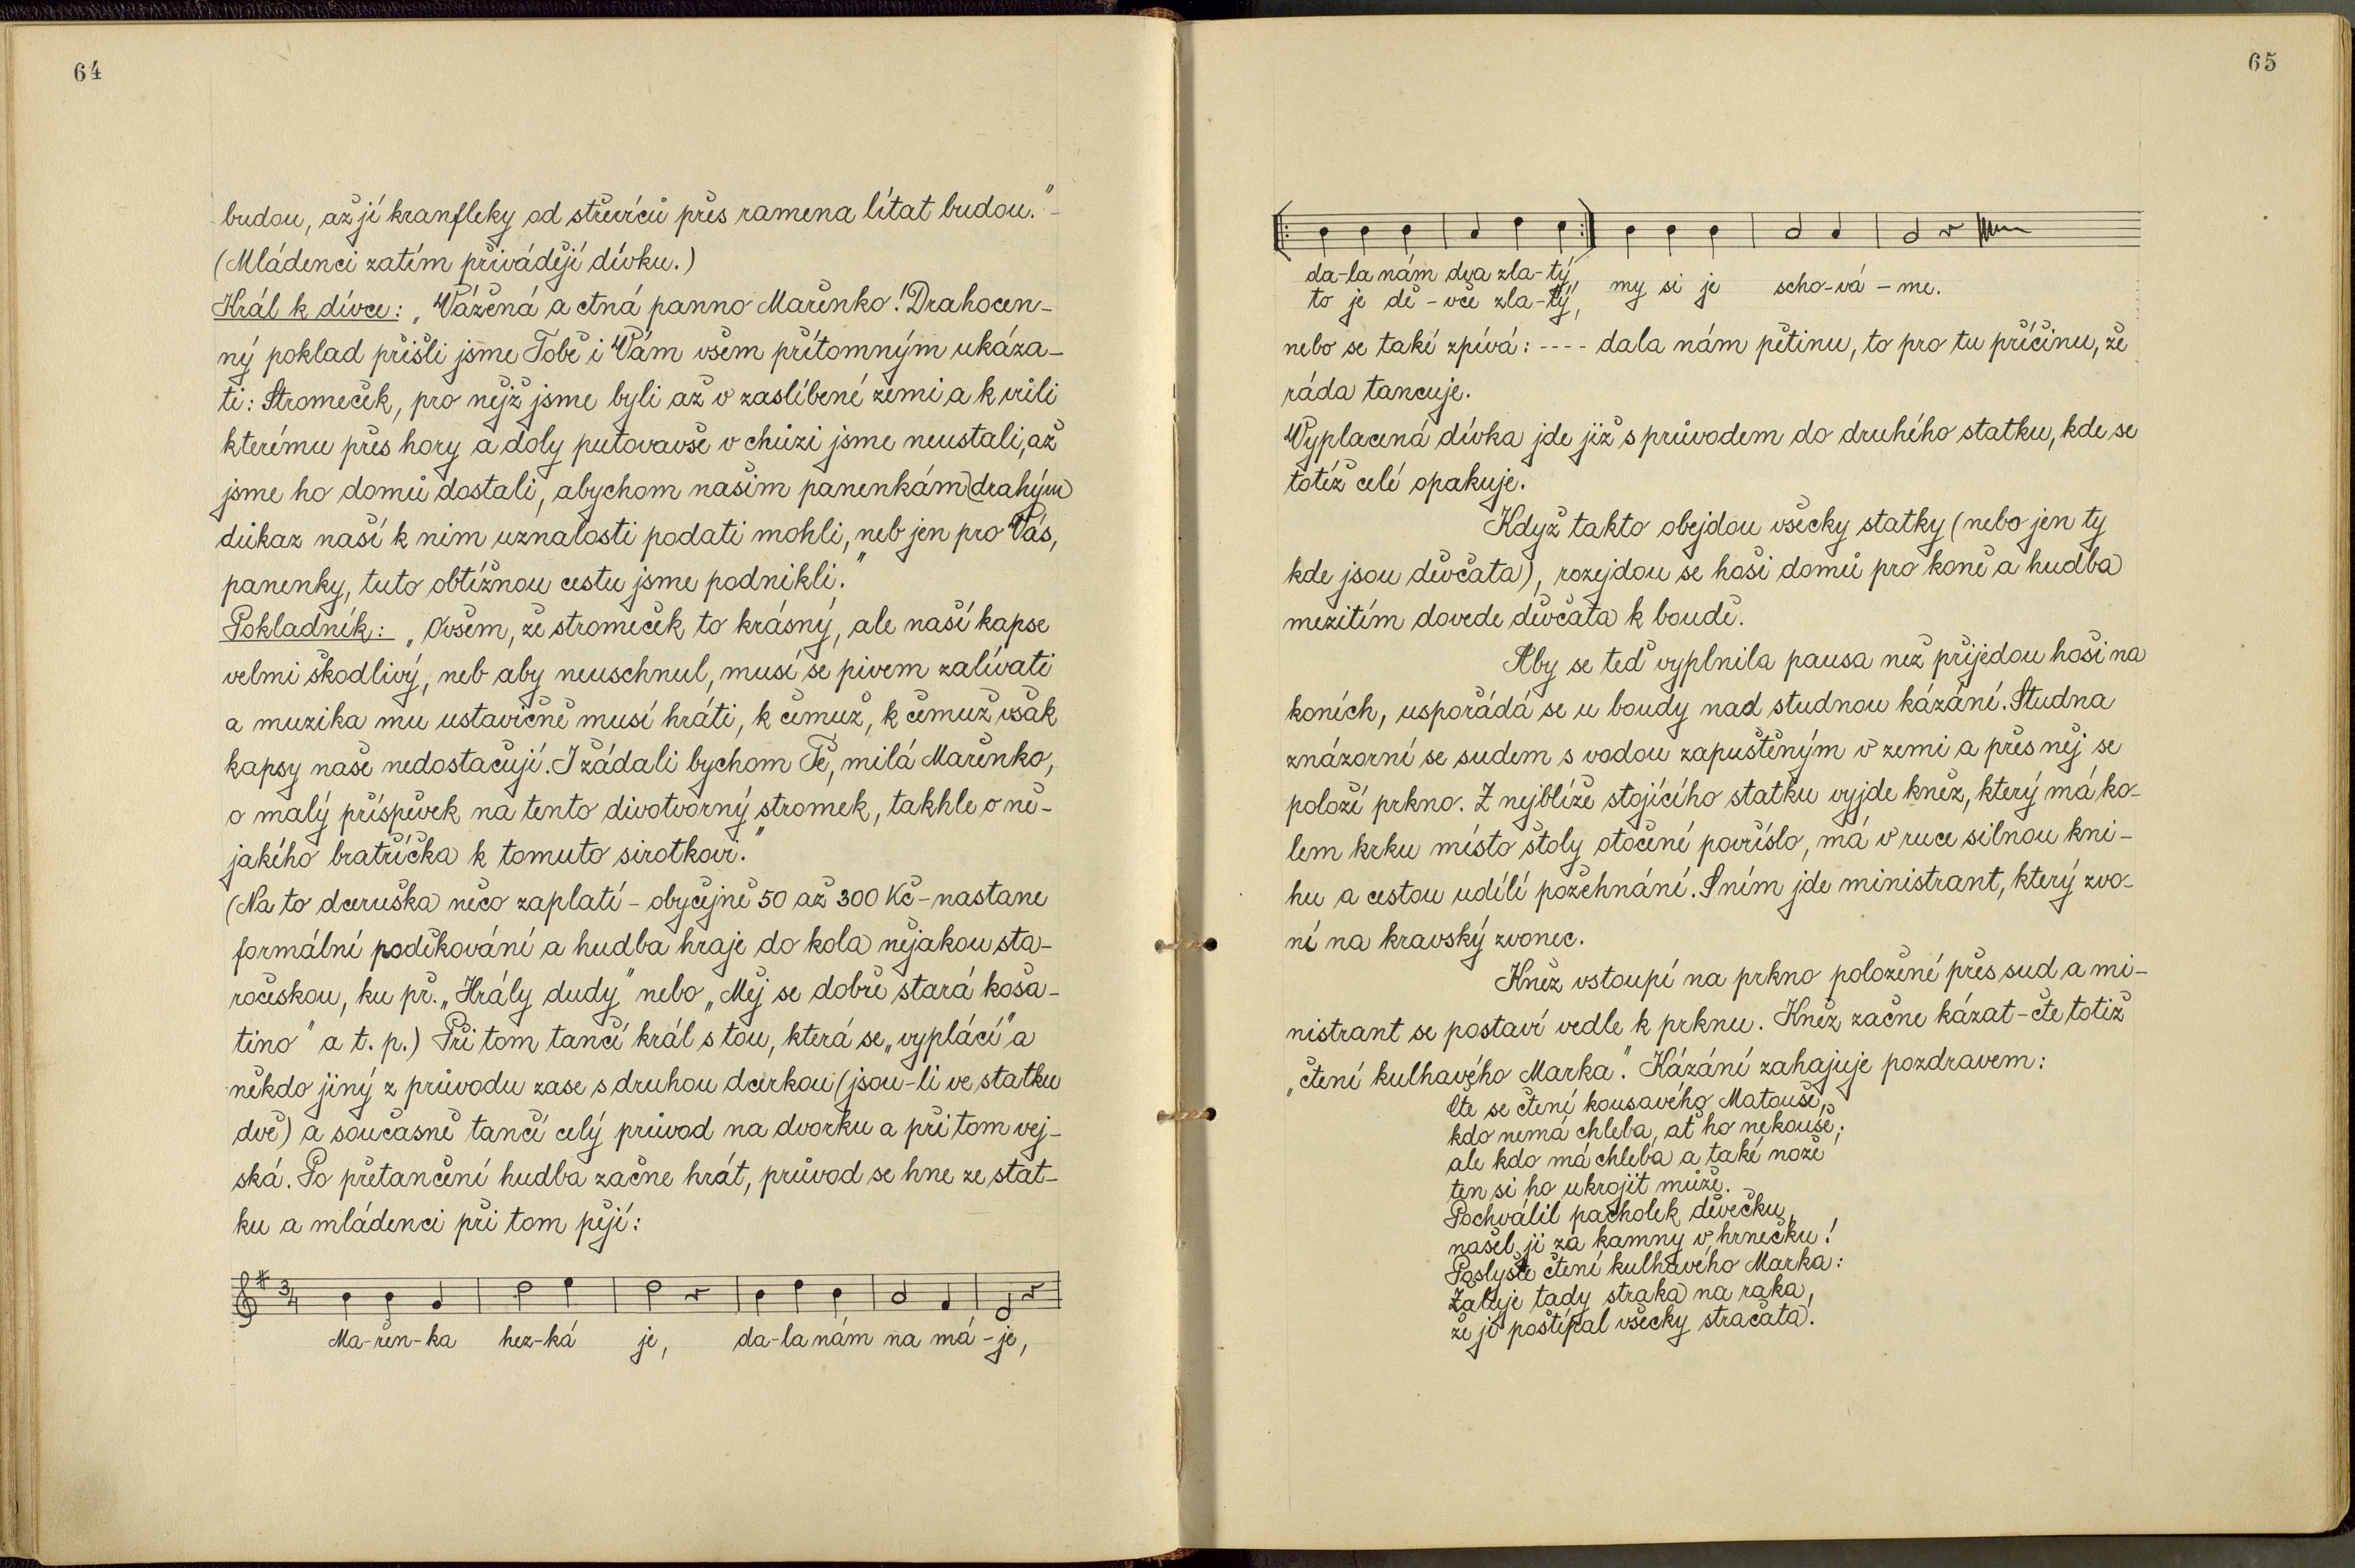 64
budou, až jí kranfleky od střevíců přes ramena lítat budou." -
(Mládenci zatím přivádějí dívku.)
Král k dívce: „Vážená a ctná panno Mařenko! Drahocen-
ný poklad přišli jsme Tobě i Vám všem přítomným ukáza-
ti: Stromeček, pro nějž jsme byli až v zaslíbené zemi a k vůli
kterému přes hory a doly putovavše v chůzi jsme neustali, až
jsme ho domů dostali, abychom našim panenkám drahým
důkaz naší k nim uznalosti podati mohli, neb jen pro Vás,
panenky, tuto obtížnou cestu jsme podnikli."
Pokladník: „Ovšem, že stromeček to krásný, ale naší kapse
velmi škodlivý, neb aby neuschnul, musí se pivem zalívati
a muzika mu ustavičně musí hráti, k čemuž, k čemuž však
kapsy naše nedostačují. I žádali bychom Tě, milá Mařenko,
o malý příspěvek na tento divotvorný stromek, takhle o ně-
jakého bratříčka k tomuto sirotkovi."
(Na to dceruška něco zaplatí - obyčejně 50 až 300 Kč - nastane
formální poděkování a hudba hraje do kola nějakou sta-
ročeskou, ku př. „Hrály dudy" nebo „Měj se dobře stará koša-
tino" a t. p.) Při tom tančí král s tou, která se „vyplácí" a
někdo jiný z průvodu zase s druhou dcerkou (jsou-li ve statku
dvě) a současně tančí celý průvod na dvorku a při tom vej-
ská. Po přetančení hudba začne hrát, průvod se hne ze stat-
ku a mládenci při tom pějí:
3/4
Ma-řen-ka hez-ká je, da-la nám na má-je,
65
da-la nám dva zla-tý,
to je dě-vče zla-tý, my si je scho-vá-me.
nebo se také zpívá: ---- dala nám pětinu, to pro tu příčinu, že
ráda tancuje.
Vyplacená dívka jde již s průvodem do druhého statku, kde se
totéž celé opakuje.
Když takto obejdou všecky statky (nebo jen ty
kde jsou děvčata), rozejdou se hoši domů pro koně a hudba
mezitím dovede děvčata k boudě.
Aby se teď vyplnila pausa než přijedou hoši na
koních, uspořádá se u boudy nad studnou kázání. Studna
znázorní se sudem s vodou zapuštěným v zemi a přes něj se
položí prkno. Z nejblíže stojícího statku vyjde kněz, který má ko-
lem krku místo štoly otočené povříslo, má v ruce silnou kni-
hu a cestou udílí požehnání. S ním jde ministrant, který zvo-
ní na kravský zvonec.
Kněz vstoupí na prkno položené přes sud a mi-
nistrant se postaví vedle k prknu. Kněz začne kázat - čte totiž
„čtení kulhavého Marka". Kázání zahajuje pozdravem:
Čte se čtení kousavého Matouše,
kdo nemá chleba, ať ho nekouše;
ale kdo má chleba a také nože
ten si ho ukrojit může.
Pochválil pacholek děvečku,
našel ji za kamny v hrnečku!
Poslyšte čtení kulhavého Marka:
Žaluje tady straka na raka,
že jí poštípal všecky stračata.